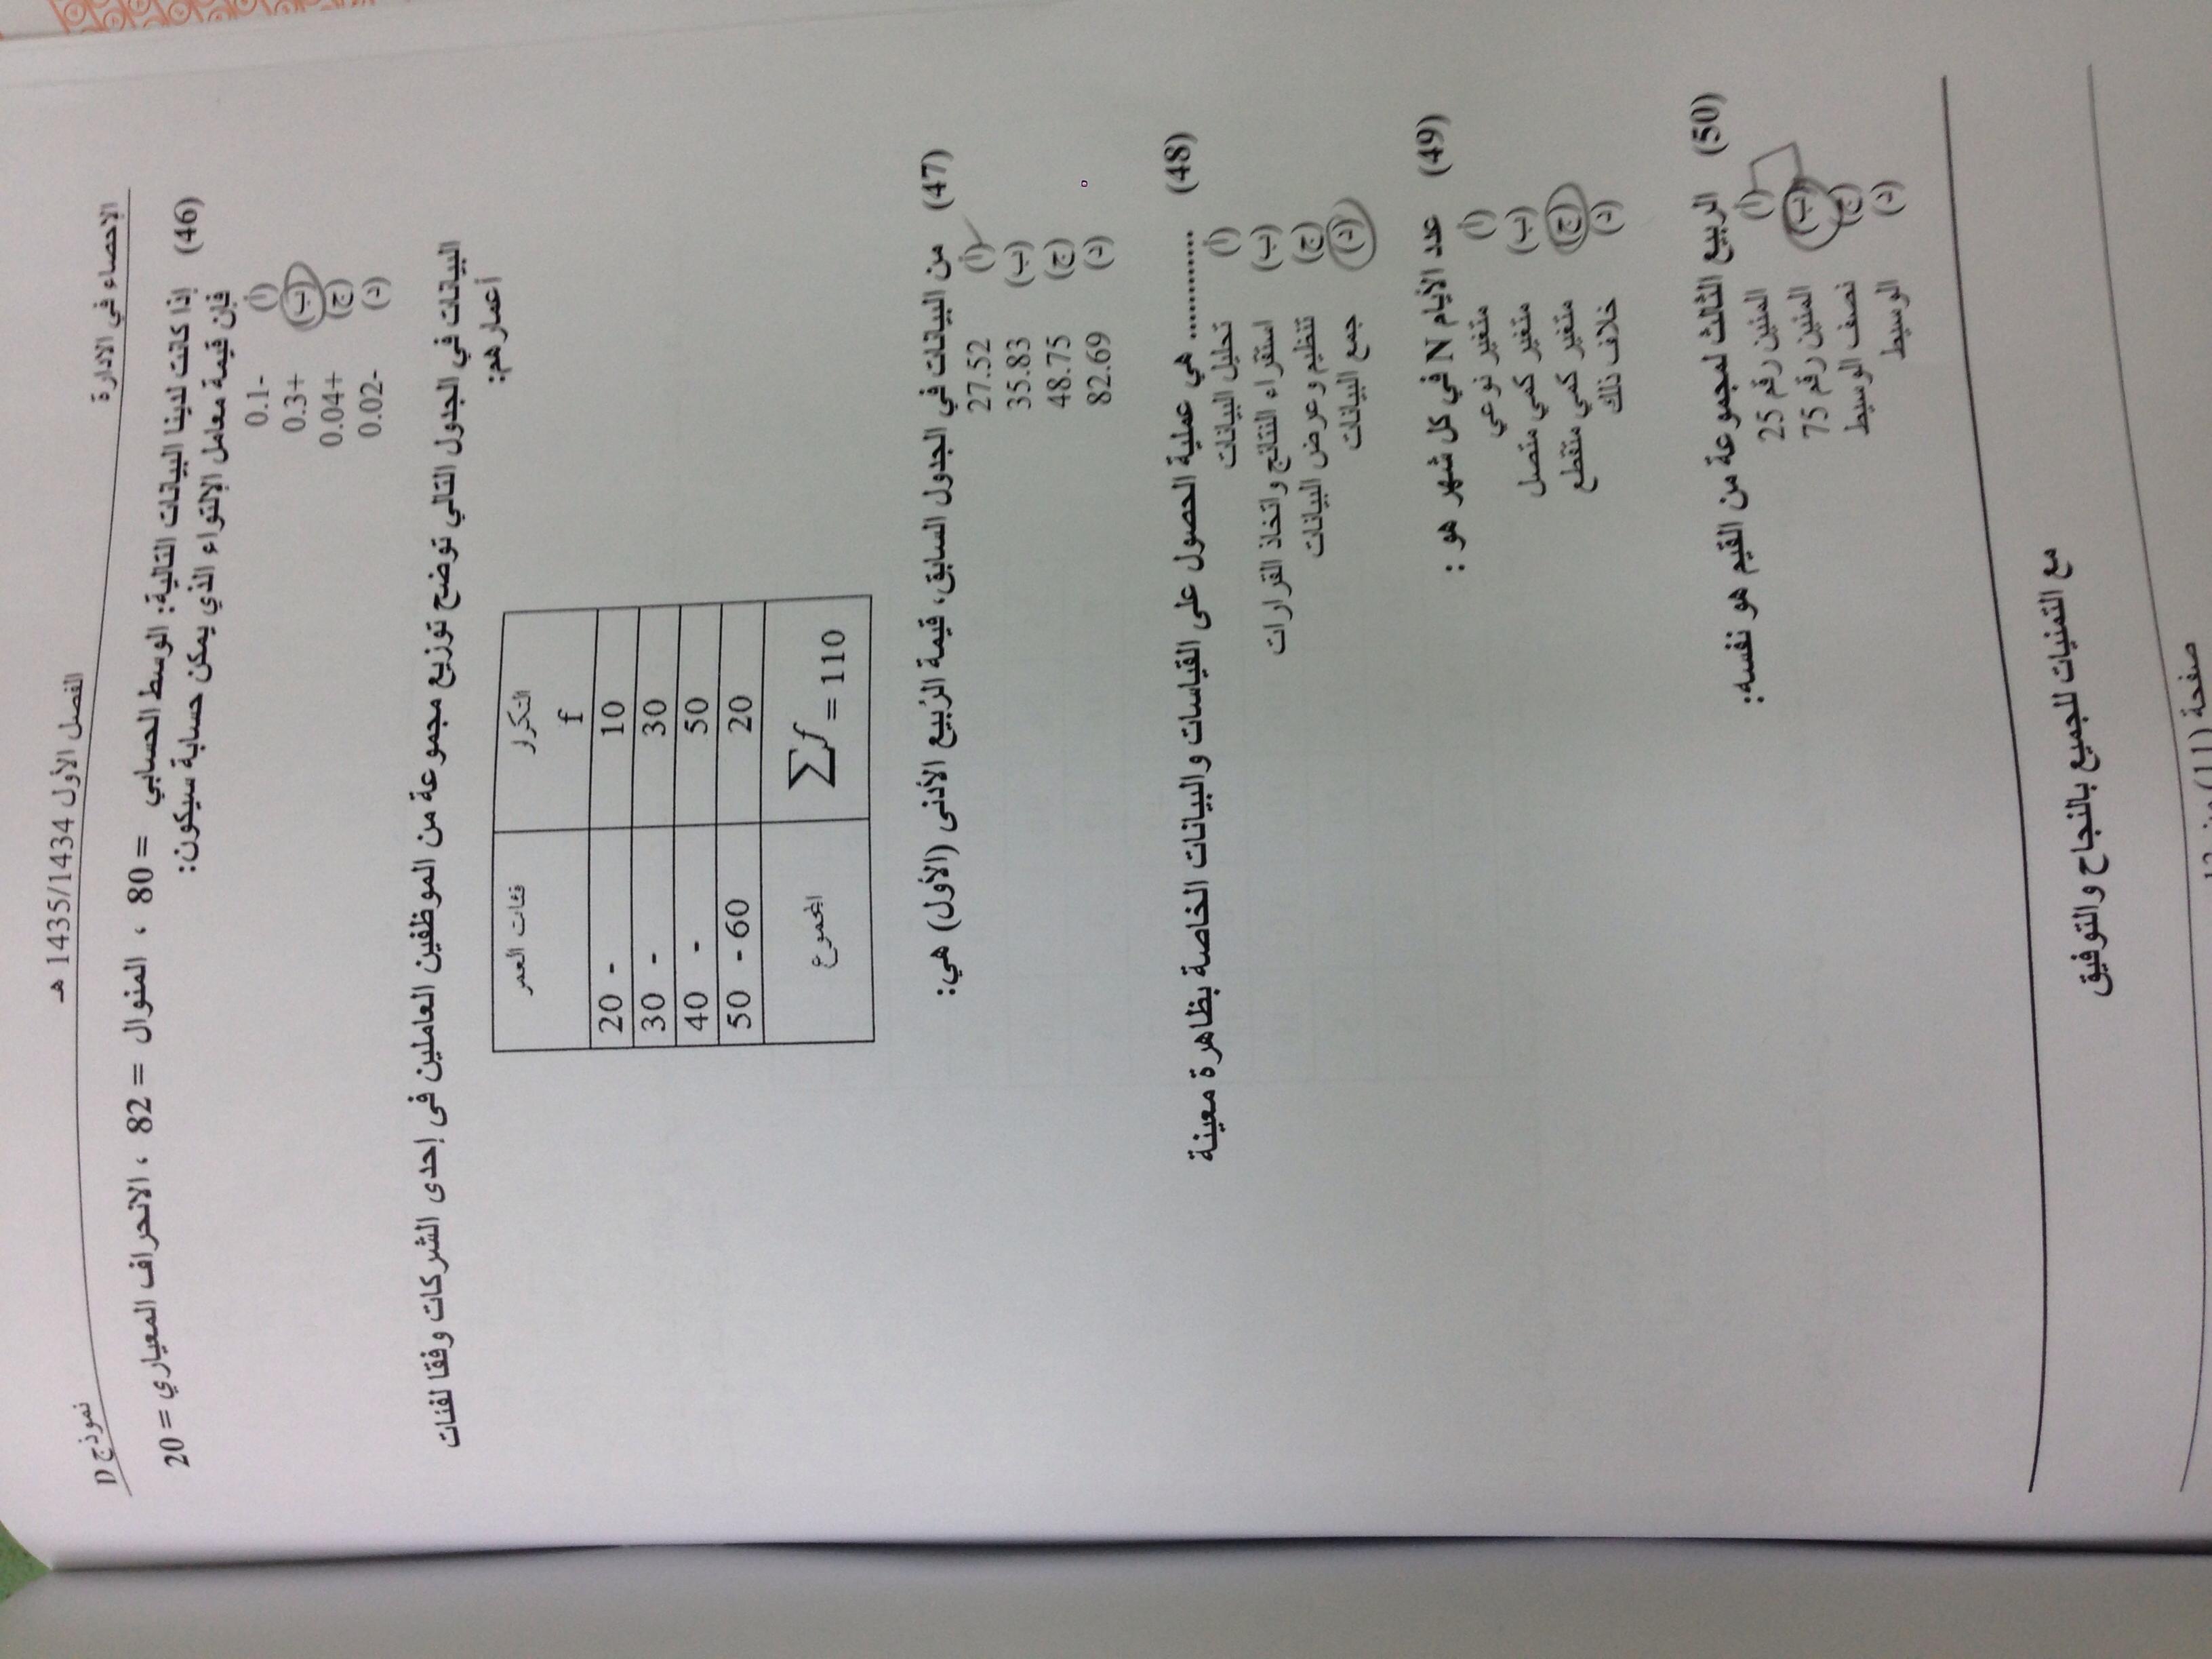 الإحصاء في الادارة
الفصل الأول 1435/1434 هـ
نموذج D
(46) إذا كانت لدينا البيانات التالية: الوسط الحسابي = 80 ، المنوال = 82 ، الانحراف المعياري = 20
فإن قيمة معامل الإلتواء الذي يمكن حسابة سيكون:
(أ) 0.1-
(ب) 0.3+
(ج) 0.04+
(د) 0.02-
البيانات في الجدول التالي توضح توزيع مجموعة من الموظفين العاملين فى إحدى الشركات وفقا لفئات
أعمارهم:
فئات العمر التكرار
f
20 - 10
30 - 30
40 - 50
50 - 60 20
المجموع ∑f = 110
(47) من البيانات في الجدول السابق، قيمة الرُبيع الأدنى (الأول) هي:
(أ) 27.52
(ب) 35.83
(ج) 48.75
(د) 82.69
(48) ............ هي عملية الحصول على القياسات والبيانات الخاصة بظاهرة معينة
(أ) تحليل البيانات
(ب) استقراء النتائج واتخاذ القرارات
(ج) تنظيم وعرض البيانات
(د) جمع البيانات
(49) عدد الأيام N في كل شهر هو :
(أ) متغير نوعي
(ب) متغير كمي متصل
(ج) متغير كمي متقطع
(د) خلاف ذلك
(50) الربيع الثالث لمجموعة من القيم هو نفسه:
(أ) المئين رقم 25
(ب) المئين رقم 75
(ج) نصف الوسيط
(د) الوسيط
مع التمنيات للجميع بالنجاح والتوفيق
صفحة (11) من